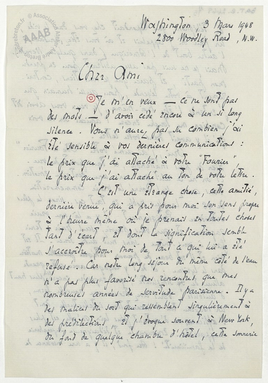 Washington, 3 Mars 1948
2800 Woodley Road, N.W.
Cher Ami
Je m'en veux — ce ne sont pas
des mots — d'avoir cédé encore à un si long
silence. Vous n'avez pas su combien j'ai
été sensible à vos dernières communications :
le prix que j'ai attaché à votre "Fourier",
le prix que j'ai attaché au ton de votre lettre.
C'est une étrange chose, cette amitié,
dernière venue, qui a pris pour moi son sens propre
à l'heure même où je prenais en toutes choses
tant d'écart, et dont la signification semble
s'accroître pour moi de tout ce qui lui a été
refusé. Car notre long séjour du même côté de l'eau
n'a pas plus favorisé nos rencontres que mes
nombreuses années de servitude parisienne. Il y a
des malices du sort qui ressemblent singulièrement à
des prédilections. Et j'évoque souvent à New York
du fond de quelque chambre d'hôtel, cette